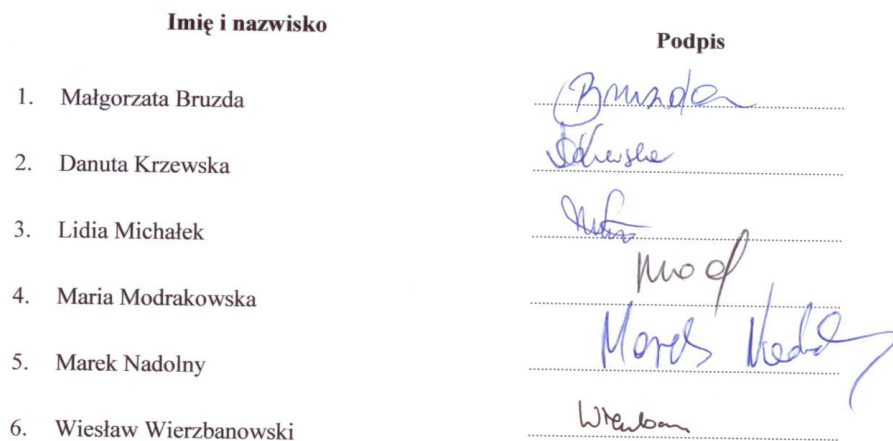 Imię i nazwisko Podpis
1. Małgorzata Bruzda Bruzda
2. Danuta Krzewska
3. Lidia Michałek
4. Maria Modrakowska Mod
5. Marek Nadolny Marek
6. Wiesław Wierzbanowski